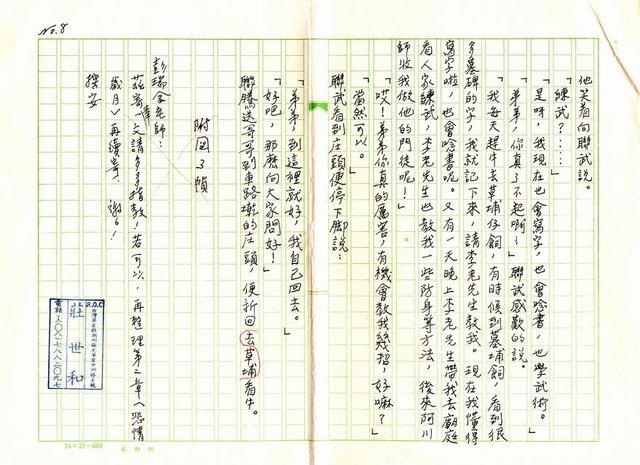 No.8
他笑着向聯武說。
「練武?……」
「是呀,我現在也會寫字,也會唸書,也學武術。」
「弟弟,你真了不起啊!」聯試感歎的說。
「我每天趕牛去草埔仔飼,有時候到墓埔飼,看到很
多墓碑的字,我就記下來,請李老先生教我。現在我懂得
寫字啦,也會唸書呢。又有一天晚上李老先生帶我去廟庭
看人家練武,李老先生也教我一些防身等方法,後來阿川
師收我做他的門徒呢!」
「哎!弟弟你真的厲害,有機會教我幾招,好嘛?」
「當然可以。」
聯武看到庄頭便停下脚說:
「弟弟,到這裡就好,我自己回去。」
「好吧,那麼向大家問好!」
聯騰送哥哥到車路墘的庄頭,便折回去草埔看牛。
附図3幀
彭瑞金老師:
茲寄一文請多多指教,若可以,再整理第二章〈悲情
歲月〉再續寄,謝々!
撰安
R.O.C
莊世和
電話:(〇八)七八八二〇九七
24×25=600